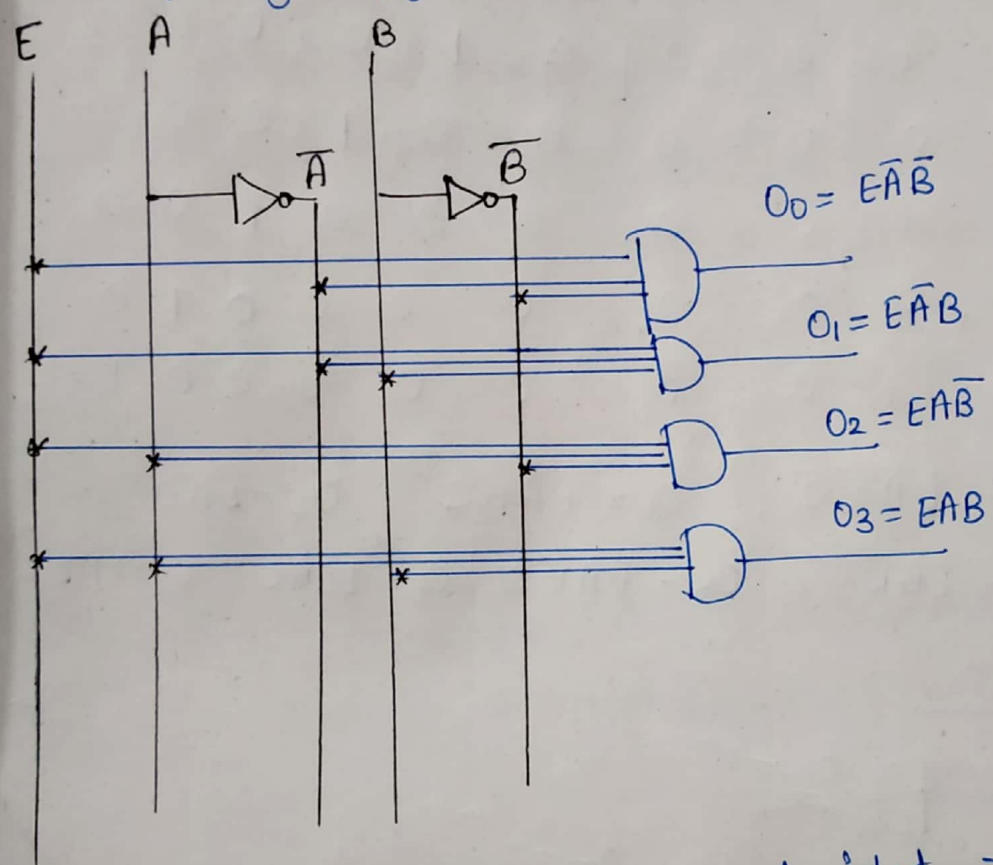 E A B
A̅ B̅
O₀ = EA̅B̅
O₁ = EA̅B
O₂ = EAB̅
O₃ = EAB